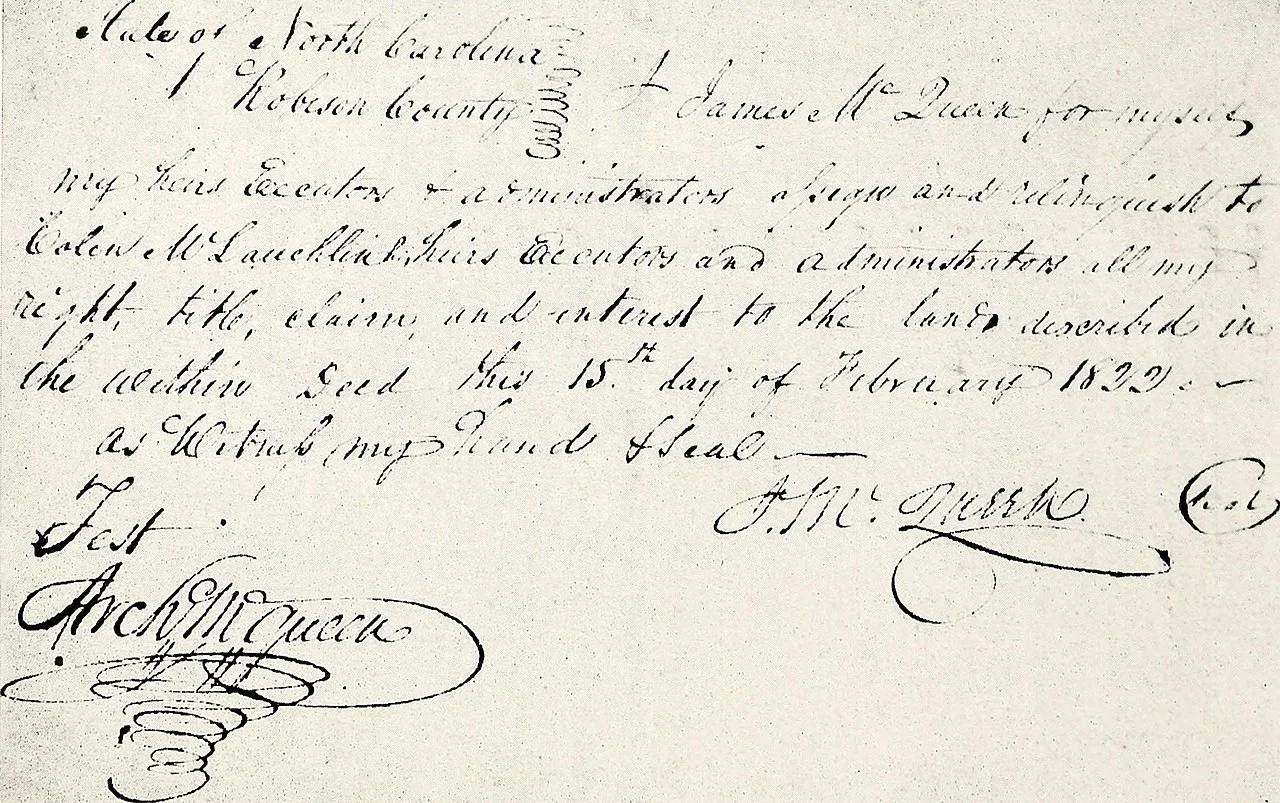 State of North Carolina
Robeson County I James Mc Queen for myself
my heirs Executors & administrators assign and relinquish to
Colin McLauchlin heirs Executors and administrators all my
right, title, claim, and interest to the land described in
the within Deed this 15th day of February 1822. —
as Witness my hand & Seal —
J. Mc. Queen (Seal)
Test
Arch Mcqueen